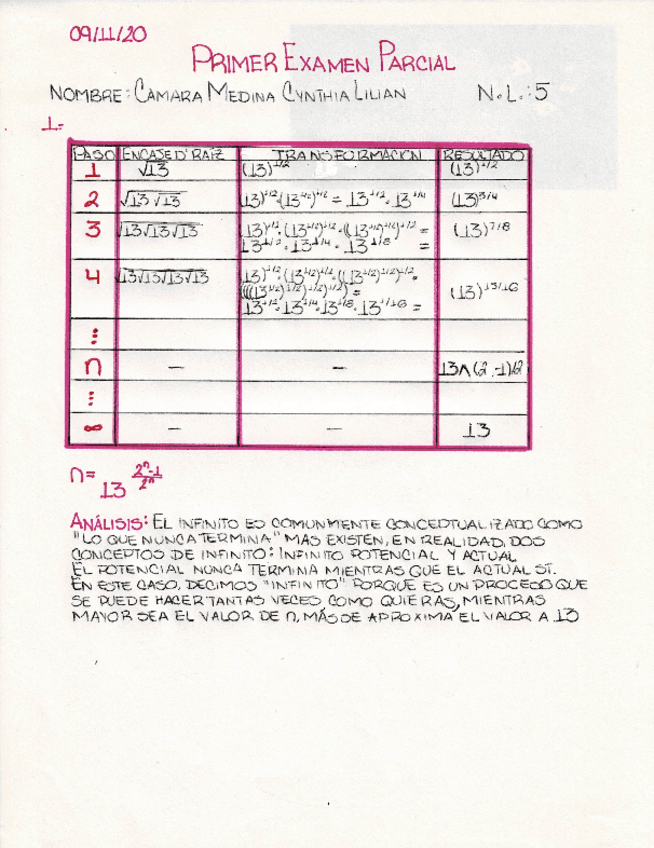 09/11/20
PRIMER EXAMEN PARCIAL
NOMBRE: CAMARA MEDINA CYNTHIA LILIAN N.L.: 5
1.-
PASO ENCAJE D' RAÍZ TRANSFORMACIÓN RESULTADO
1 √13 (13)^1/2 (13)^1/2
2 √13√13 (13)^1/2·(13^1/2)^1/2 = 13^1/2·13^1/4 (13)^3/4
3 √13√13√13 (13)^1/2·(13^1/2)^1/2·((13^1/2)^1/2)^1/2 = (13)^7/8
13^1/2·13^1/4·13^1/8 =
4 √13√13√13√13 (13)^1/2·(13^1/2)^1/2·((13^1/2)^1/2)^1/2· (13)^15/16
(((13^1/2)^1/2)^1/2)^1/2) =
13^1/2·13^1/4·13^1/8·13^1/16 =
⋮
n — — 13^(2 -1)/2
⋮
∞ — — 13
n= 13^(2^n-1/2^n)
ANÁLISIS: EL INFINITO ES COMUNMENTE CONCEPTUALIZADO COMO
"LO QUE NUNCA TERMINA" MAS EXISTEN, EN REALIDAD, DOS
CONCEPTOS DE INFINITO: INFINITO POTENCIAL Y ACTUAL
EL POTENCIAL NUNCA TERMINA MIENTRAS QUE EL ACTUAL SÍ.
EN ESTE CASO, DECIMOS "INFINITO" PORQUE ES UN PROCESO QUE
SE PUEDE HACER TANTAS VECES COMO QUIERAS, MIENTRAS
MAYOR SEA EL VALOR DE n, MÁS SE APROXIMA EL VALOR A 13